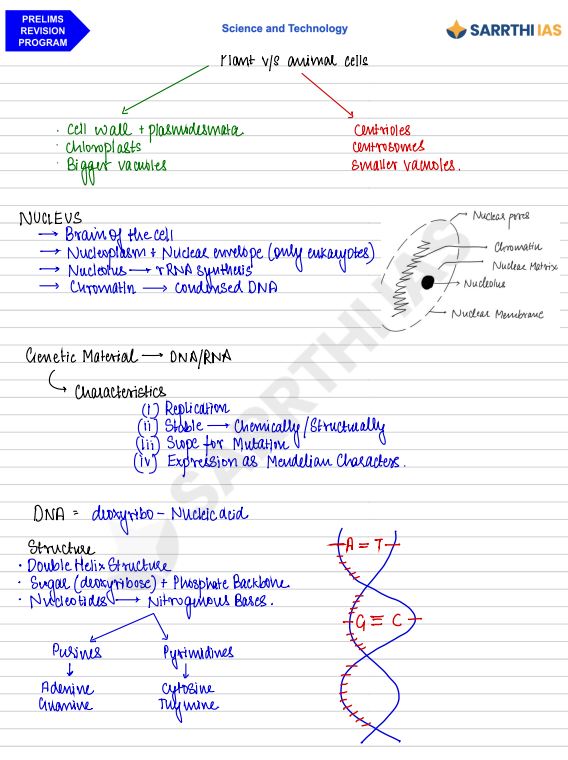 PRELIMS
REVISION
PROGRAM
Science and Technology
SARRTHI IAS
Plant v/s animal cells
· Cell wall + plasmodesmata
· Chloroplasts
· Bigger vacuoles
Centrioles
Centrosomes
Smaller vacuoles.
NUCLEUS
→ Brain of the cell
→ Nucleoplasm + Nuclear envelope (only eukaryotes)
→ Nucleolus → rRNA synthesis
→ Chromatin → condensed DNA
Nuclear pores
Chromatin
Nuclear Matrix
Nucleolus
Nuclear Membrane
Genetic Material → DNA/RNA
Characteristics
(i) Replication
(ii) Stable → Chemically/Structurally
(iii) Scope for Mutation
(iv) Expression as Mendelian Characters.
DNA = deoxyribo - Nucleic acid
Structure
· Double Helix Structure
· Sugar (deoxyribose) + Phosphate Backbone
· Nucleotides → Nitrogenous Bases.
Purines
Pyrimidines
Adenine
Guanine
Cytosine
Thymine
A = T
G ≡ C
SARRTHI IAS